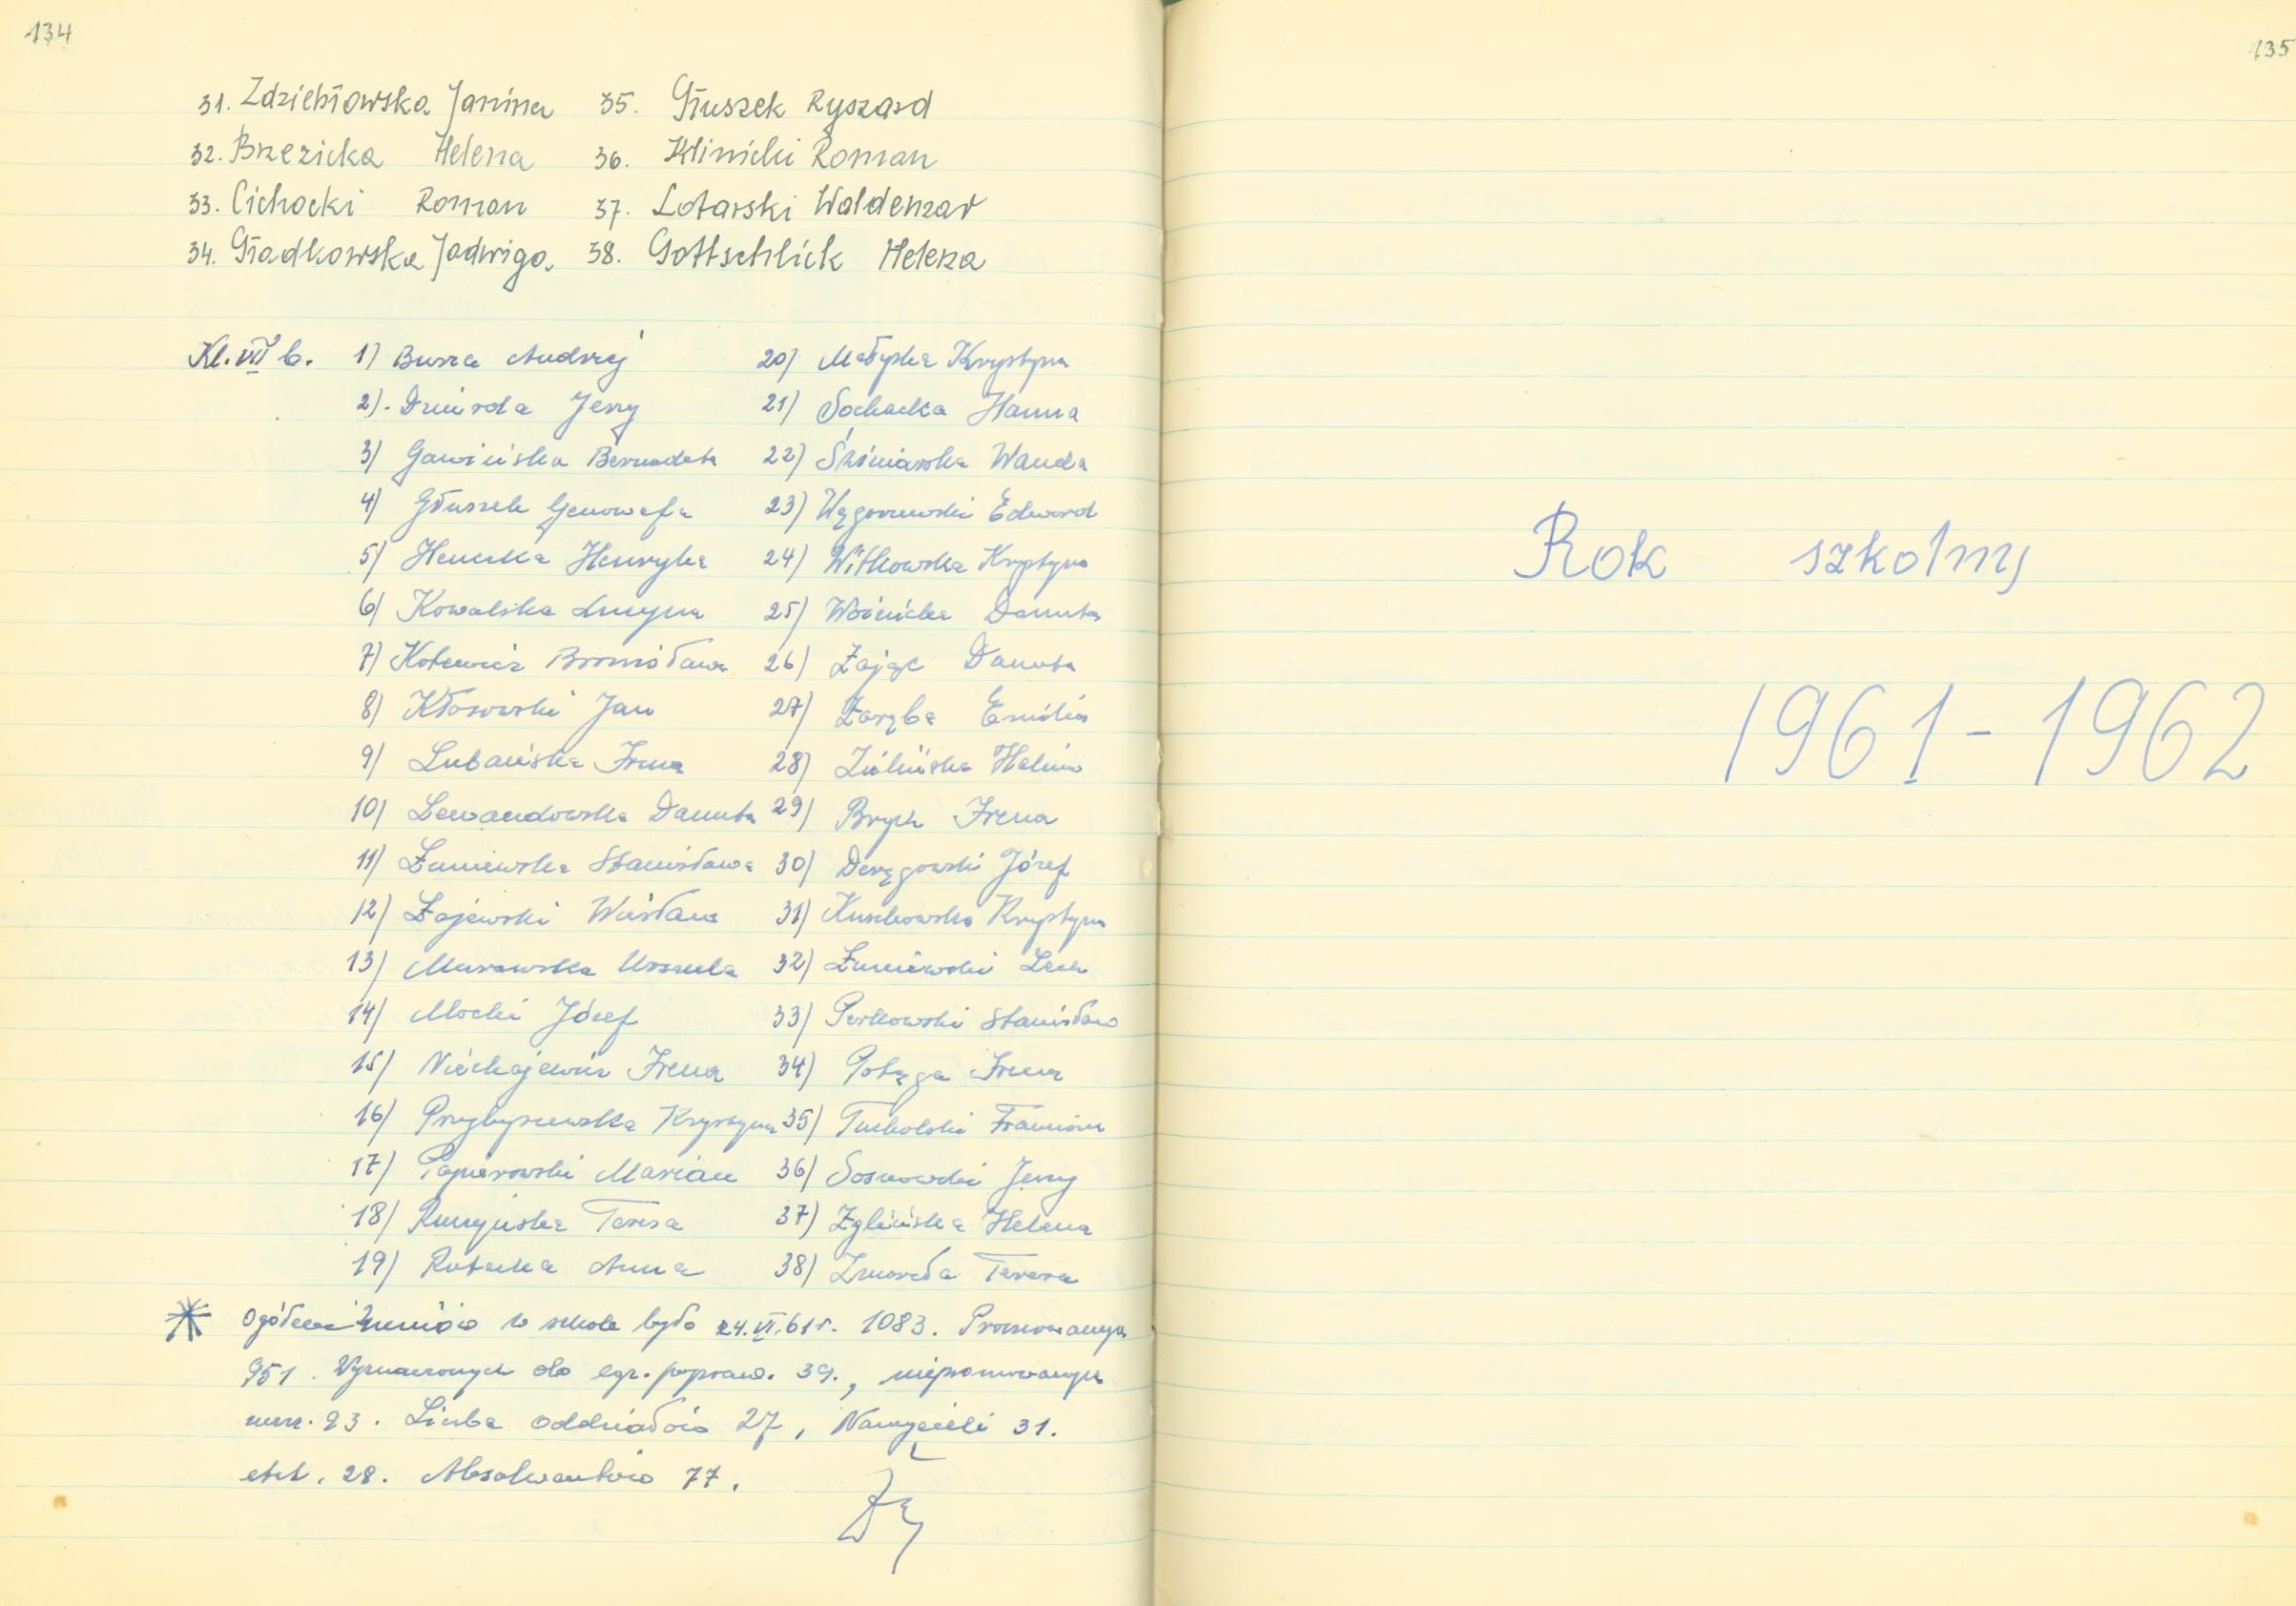 134
31. Zdziebłowska Janina 35. Głuszek Ryszard
32. Brzezicka Helena 36. Klinicki Roman
33. Cichocki Roman 37. Lotarski Waldemar
34. Gładkowska Jadwiga. 38. Gottschlick Helena
Kl. VII b. 1) Busza Andrzej 20) Małyska Krystyna
2). Jerzy 21) Sochacka Hanna
3) Gawińska Bernadeta 22) Wanda
4) Głuszek Genowefa 23) Węgorzewski Edward
5) Henryka 24) Witkowska Krystyna
6) Kowalska Lucyna 25) Woźnicka Danuta
7) Kotewicz Bronisława 26) Zając Danuta
8) Kłosowski Jan 27) Zaręba Emilia
9) Lubańska Irena 28) Zielińska Halina
10) Lewandowska Danuta 29) Brych Irena
11) Łaniewska Stanisława 30) Deręgowski Józef
12) Łajewski Wiesław 31) Krystyna
13) Murawska Urszula 32) Łuniewski Lech
14) Mocki Józef 33) Perkowski Stanisław
15) Niechajewicz Irena 34) Potęga Irena
16) Przybyszewska Krystyna 35) Tucholski
17) Papierowski Marian 36) Sosnowski Jerzy
18) Teresa 37) Zglińska Helena
19) Rutecka Anna 38) Teresa
Ogółem uczniów w szkole było 24.VI.61r. 1083. Promowanych
951. Wyznaczonych do egz. popraw. 39., niepromowanych
ucz. 93. Liczba oddziałów 27, Nauczycieli 31.
etat. 28. Absolwentów 77.
135
Rok szkolny
1961-1962